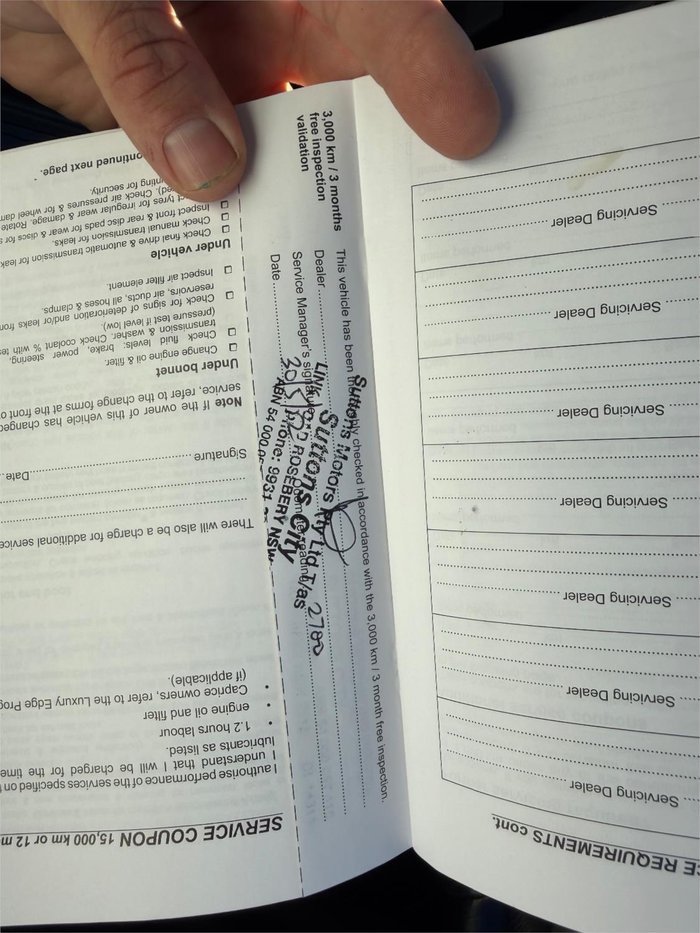 CE REQUIREMENTS cont.
Servicing Dealer
Servicing Dealer
Servicing Dealer
Servicing Dealer
Servicing Dealer
Servicing Dealer
Servicing Dealer
3,000 km / 3 months
free inspection
validation
This vehicle has been thoroughly checked in accordance with the 3,000 km / 3 month free inspection.
Dealer
Service Manager's signature
Date
Odometer reading
2700
Suttons Motors Pty Ltd T/as
Suttons City
ROSEBERY NSW
Phone: 9931
ABN 54 000
SERVICE COUPON 15,000 km or 12 m
I authorise performance of the services specified on
I understand that I will be charged for the time
lubricants as listed.
• 1.2 hours labour
• engine oil and filter
• Caprice owners, refer to the Luxury Edge Prog
(if applicable).
There will also be a charge for additional service
Signature Date
Note If the owner of this vehicle has changed
service, refer to the change forms at the front o
Under bonnet
Change engine oil & filter.
Check fluid levels: brake, power steering,
transmission & washer. Check coolant % with tes
(pressure test if low).
Check for signs of deterioration and/or leaks from
reservoirs, air ducts, all hoses & clamps.
Inspect air filter element.
Under vehicle
Check final drive & automatic transmission for leak
Check manual transmission for leaks.
Inspect front & rear disc pads for wear & discs for s
ct tyres for irregular wear & damage. Rotate
ed). Check air pressures & for wheel dam
nting for security.
ontinued next page.